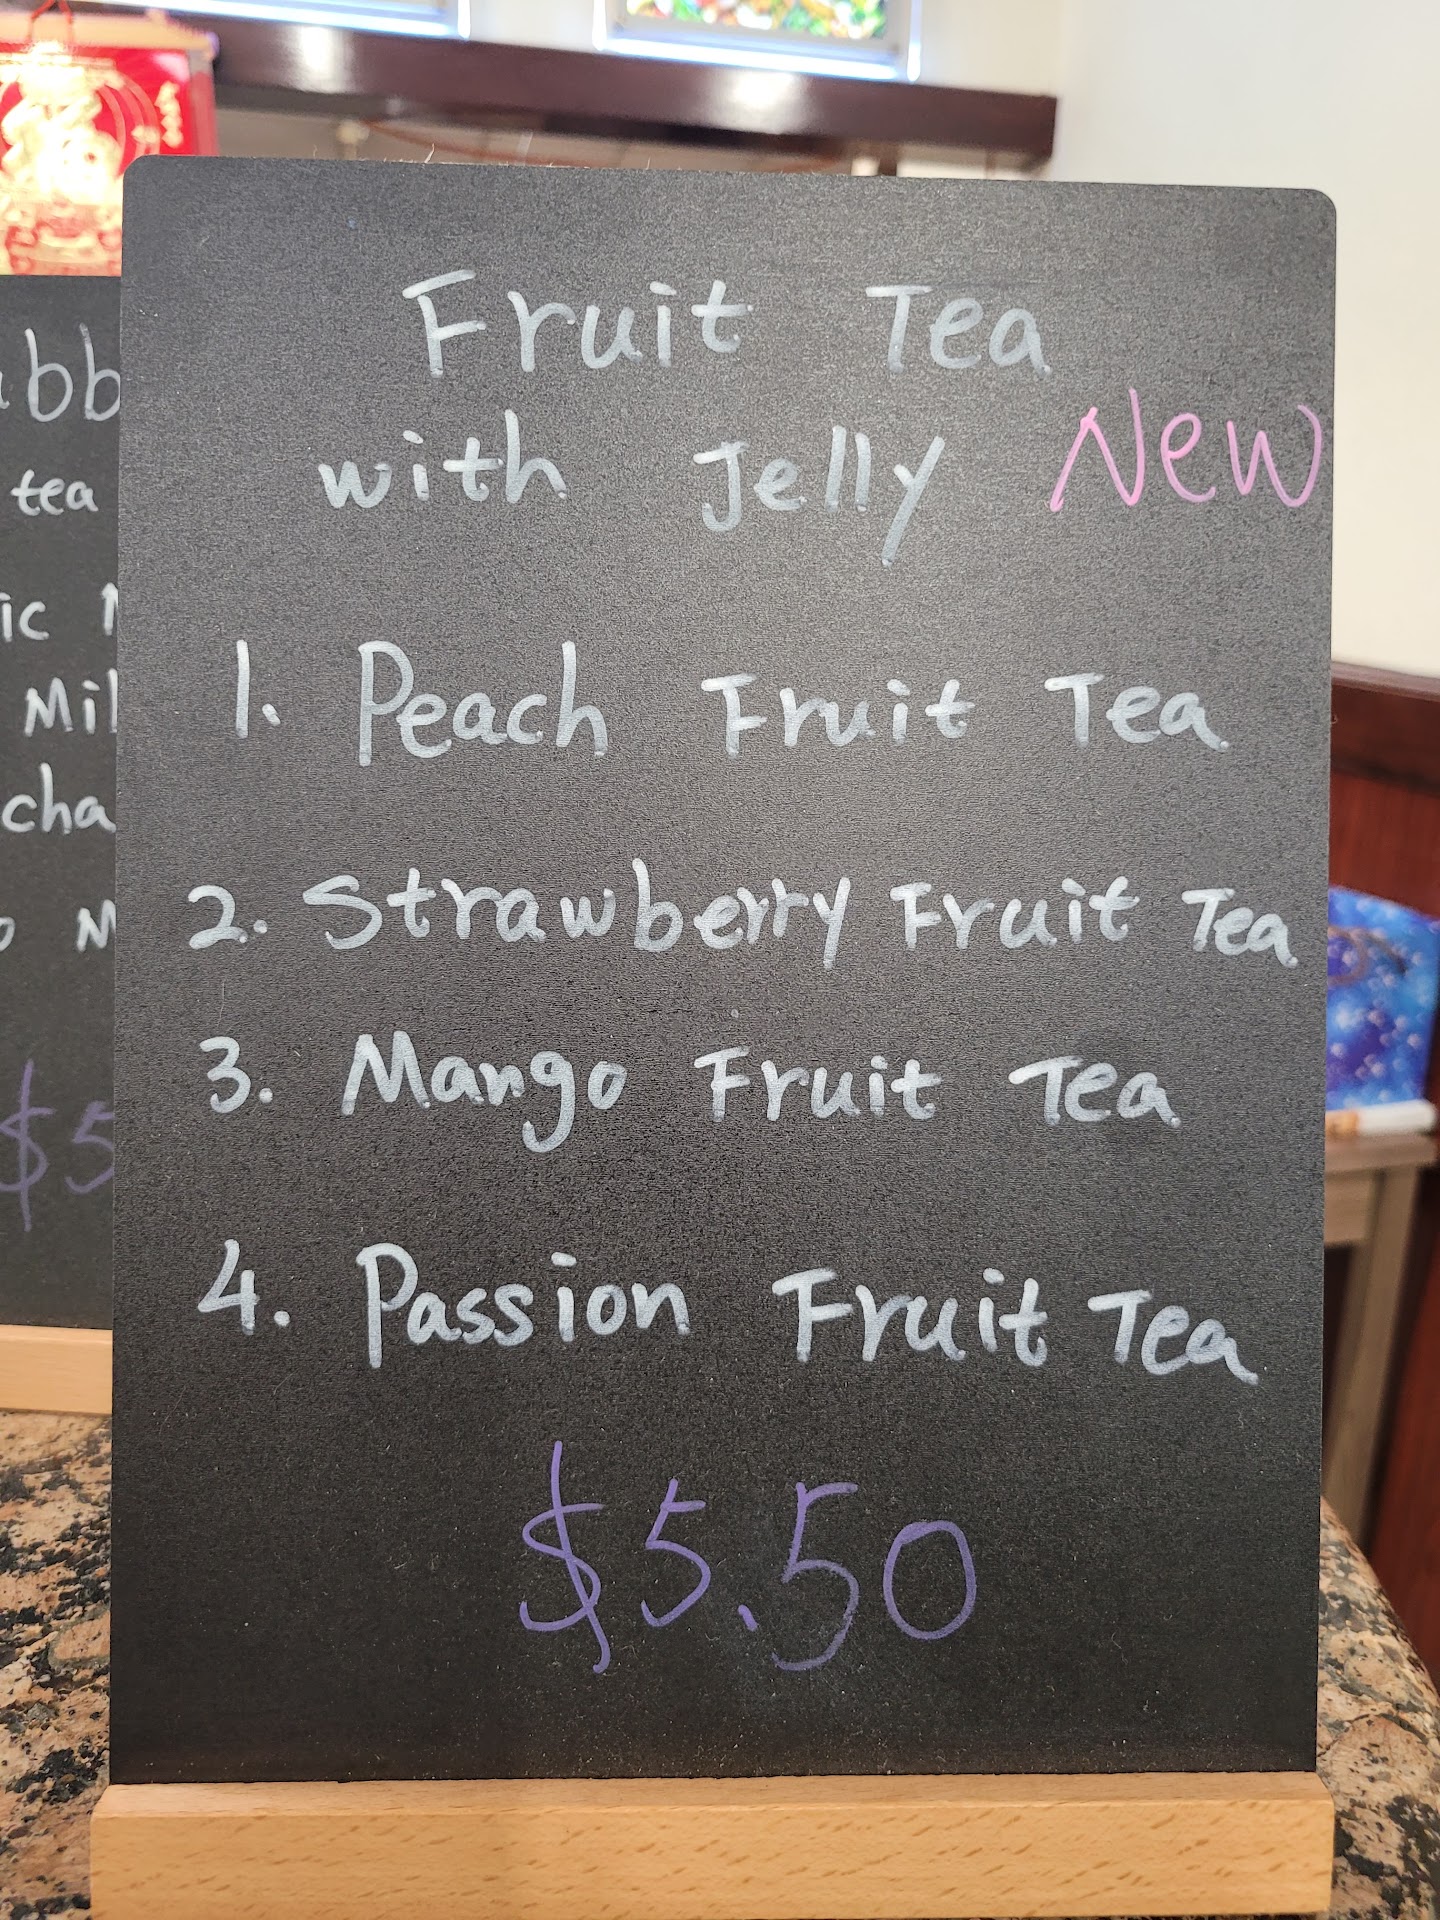 Fruit Tea
with Jelly New
1. Peach Fruit Tea
2. Strawberry Fruit Tea
3. Mango Fruit Tea
4. Passion Fruit Tea
$5.50
tea
$5